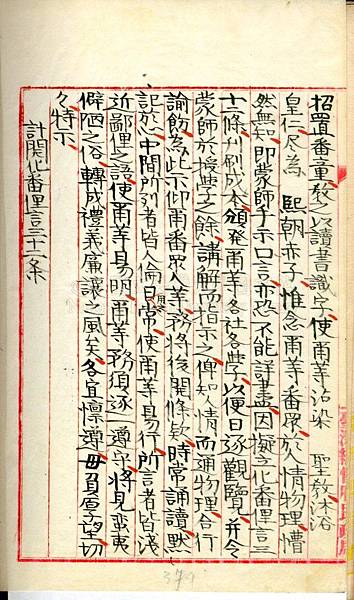 招置番童教以讀書識字使爾等沾染 聖教沐浴
皇仁尽為 熙朝赤子惟念爾等番眾於人情物理懵
然無知即蒙師手示口言亦恐不能詳盡因擬字化番俚言三
十二條刊刷成本頒発爾等各社各學以便日逐觀覽并令
蒙師於授學之餘講解而指示之俾知人情而通物理合行
諭飭為此示仰爾番眾人等務將後開條欵時常誦讀默
記於心中間所列者皆人倫日用常使爾等易行所言者皆淺
近鄙俚之語使爾等易明爾等務須逐一遵守將見蛮夷
僻陋之俗轉成禮義廉讓之風矣各宜懍遵毋負厚望切
々特示
計開化番俚言三十二条
379